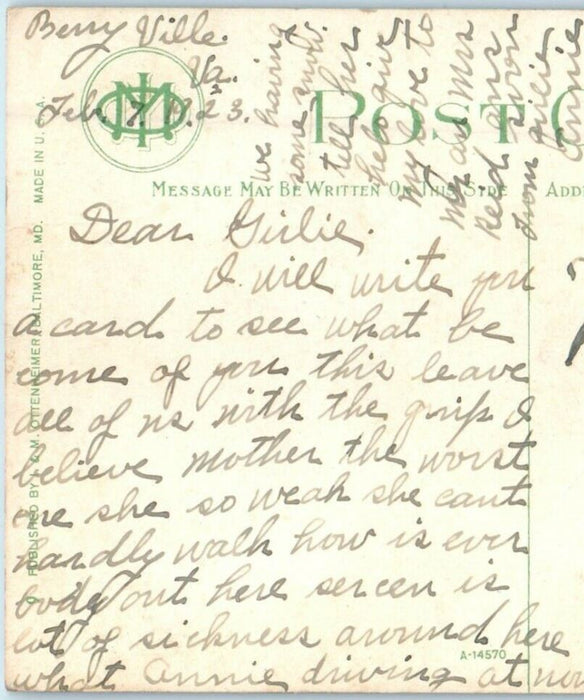 Berry Ville.
Va.
Feb. 7, 1923.
POST C
MESSAGE MAY BE WRITTEN ON THIS SIDE
ADD
Dear Girlie.
I will write you
a card to see what be
come of you this leave
all of us with the grip I
believe mother the worst
one she so weak she cant
hardly walk how is ever
body out here is
lot of sickness around here
what Annie driving at now
we having
some snow.
tell her
help give
my love to
as Mrs
Reid
from
Annie
PUBLISHED BY I. & M. OTTENHEIMER, BALTIMORE, MD. MADE IN U. S. A.
A-14570